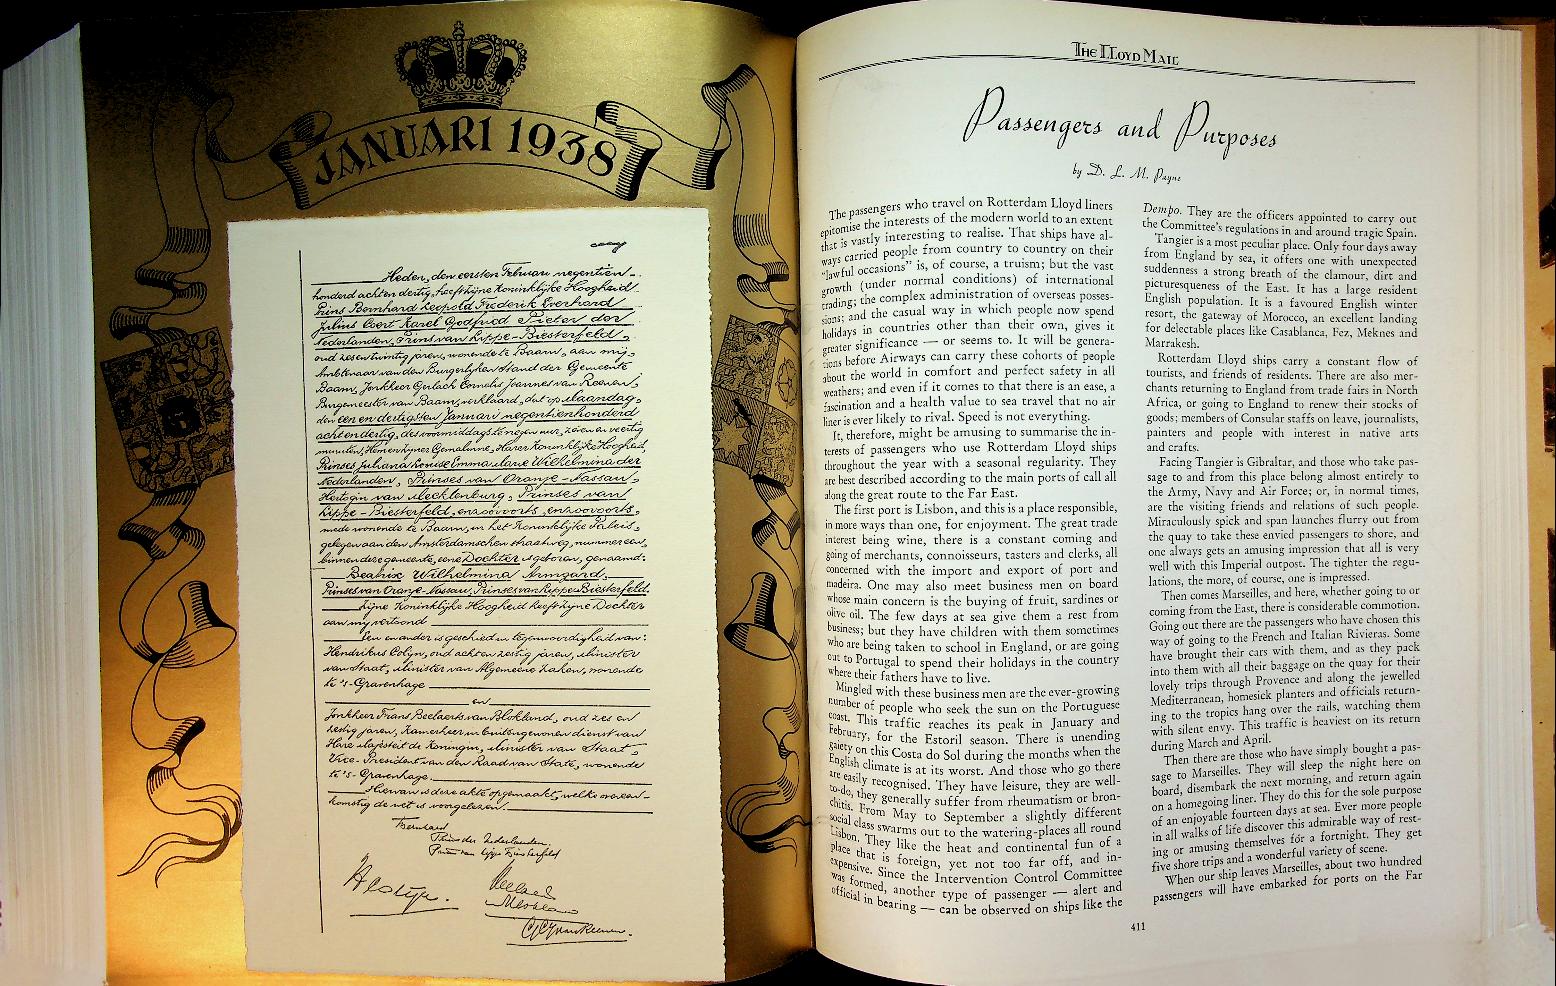 JANUARI 1938
Heden, den eersten Februari negentien-
honderd acht en dertig, heeft Zijne Koninklijke Hoogheid
Prins Bernhard Leopold Frederik Everhard
Julius Coert Karel Godfried Pieter der
Nederlanden, Prins van Lippe-Biesterfeld,
oud zes en twintig jaren, wonende te Baarn, aan mij,
Ambtenaar van den Burgerlijken Stand der Gemeente
Baarn, Jonkheer Gerlach Cornelis Joannes van Reenen,
Burgemeester van Baarn, verklaard, dat op Maandag,
den een en dertigsten Januari negentienhonderd
acht en dertig, des voormiddags te negen uur, zeven en veertig
minuten, Hoogstzijner Gemalinne, Harer Koninklijke Hoogheid,
Prinses Juliana Louise Emma Marie Wilhelmina der
Nederlanden, Prinses van Oranje-Nassau,
Hertogin van Mecklenburg, Prinses van
Lippe-Biesterfeld, enzoovoorts, enzoovoorts,
mede wonende te Baarn, in het Koninklijke Paleis,
gelegen aan den Amsterdamschen straatweg, nummer een,
binnen deze gemeente, eene Dochter is geboren, genaamd:
Beatrix Wilhelmina Armgard,
Prinses van Oranje-Nassau, Prinses van Lippe-Biesterfeld.
Zijne Koninklijke Hoogheid heeft Zijne Dochter
aan mij vertoond
Een en ander is geschied in tegenwoordigheid van:
Hendrikus Colijn, oud acht en zestig jaren, Minister
van Staat, Minister van Algemeene Zaken, wonende
te 's-Gravenhage
en
Jonkheer Frans Beelaerts van Blokland, oud zes en
zestig jaren, Kamerheer in buitengewonen dienst van
Hare Majesteit de Koningin, Minister van Staat,
Vice-President van den Raad van State, wonende
te 's-Gravenhage.
Hiervan is deze akte opgemaakt, welke overeen-
komstig de wet is voorgelezen.
Bernhard
Prins der Nederlanden
Prins van Lippe Biesterfeld
H Colijn.
Beelaerts
v Blokland
GCJ van Reenen.
THE LLOYD MAIL
Passengers and Purposes
by D. L. M. Payne
The passengers who travel on Rotterdam Lloyd liners
epitomise the interests of the modern world to an extent
that is vastly interesting to realise. That ships have al-
ways carried people from country to country on their
"lawful occasions" is, of course, a truism; but the vast
growth (under normal conditions) of international
trading; the complex administration of overseas posses-
sions; and the casual way in which people now spend
holidays in countries other than their own, gives it
greater significance — or seems to. It will be genera-
tions before Airways can carry these cohorts of people
about the world in comfort and perfect safety in all
weathers; and even if it comes to that there is an ease, a
fascination and a health value to sea travel that no air
liner is ever likely to rival. Speed is not everything.
It, therefore, might be amusing to summarise the in-
terests of passengers who use Rotterdam Lloyd ships
throughout the year with a seasonal regularity. They
are best described according to the main ports of call all
along the great route to the Far East.
The first port is Lisbon, and this is a place responsible,
in more ways than one, for enjoyment. The great trade
interest being wine, there is a constant coming and
going of merchants, connoisseurs, tasters and clerks, all
concerned with the import and export of port and
madeira. One may also meet business men on board
whose main concern is the buying of fruit, sardines or
olive oil. The few days at sea give them a rest from
business; but they have children with them sometimes
who are being taken to school in England, or are going
out to Portugal to spend their holidays in the country
where their fathers have to live.
Mingled with these business men are the ever-growing
number of people who seek the sun on the Portuguese
coast. This traffic reaches its peak in January and
February, for the Estoril season. There is unending
gaiety on this Costa do Sol during the months when the
English climate is at its worst. And those who go there
are easily recognised. They have leisure, they are well-
to-do, they generally suffer from rheumatism or bron-
chitis. From May to September a slightly different
social class swarms out to the watering-places all round
Lisbon. They like the heat and continental fun of a
place that is foreign, yet not too far off, and in-
expensive. Since the Intervention Control Committee
was formed, another type of passenger — alert and
official in bearing — can be observed on ships like the
Dempo. They are the officers appointed to carry out
the Committee's regulations in and around tragic Spain.
Tangier is a most peculiar place. Only four days away
from England by sea, it offers one with unexpected
suddenness a strong breath of the clamour, dirt and
picturesqueness of the East. It has a large resident
English population. It is a favoured English winter
resort, the gateway of Morocco, an excellent landing
for delectable places like Casablanca, Fez, Meknes and
Marrakesh.
Rotterdam Lloyd ships carry a constant flow of
tourists, and friends of residents. There are also mer-
chants returning to England from trade fairs in North
Africa, or going to England to renew their stocks of
goods; members of Consular staffs on leave, journalists,
painters and people with interest in native arts
and crafts.
Facing Tangier is Gibraltar, and those who take pas-
sage to and from this place belong almost entirely to
the Army, Navy and Air Force; or, in normal times,
are the visiting friends and relations of such people.
Miraculously spick and span launches flurry out from
the quay to take these envied passengers to shore, and
one always gets an amusing impression that all is very
well with this Imperial outpost. The tighter the regu-
lations, the more, of course, one is impressed.
Then comes Marseilles, and here, whether going to or
coming from the East, there is considerable commotion.
Going out there are the passengers who have chosen this
way of going to the French and Italian Rivieras. Some
have brought their cars with them, and as they pack
into them with all their baggage on the quay for their
lovely trips through Provence and along the jewelled
Mediterranean, homesick planters and officials return-
ing to the tropics hang over the rails, watching them
with silent envy. This traffic is heaviest on its return
during March and April.
Then there are those who have simply bought a pas-
sage to Marseilles. They will sleep the night here on
board, disembark the next morning, and return again
on a homegoing liner. They do this for the sole purpose
of an enjoyable fourteen days at sea. Ever more people
in all walks of life discover this admirable way of rest-
ing or amusing themselves for a fortnight. They get
five shore trips and a wonderful variety of scene.
When our ship leaves Marseilles, about two hundred
passengers will have embarked for ports on the Far
411